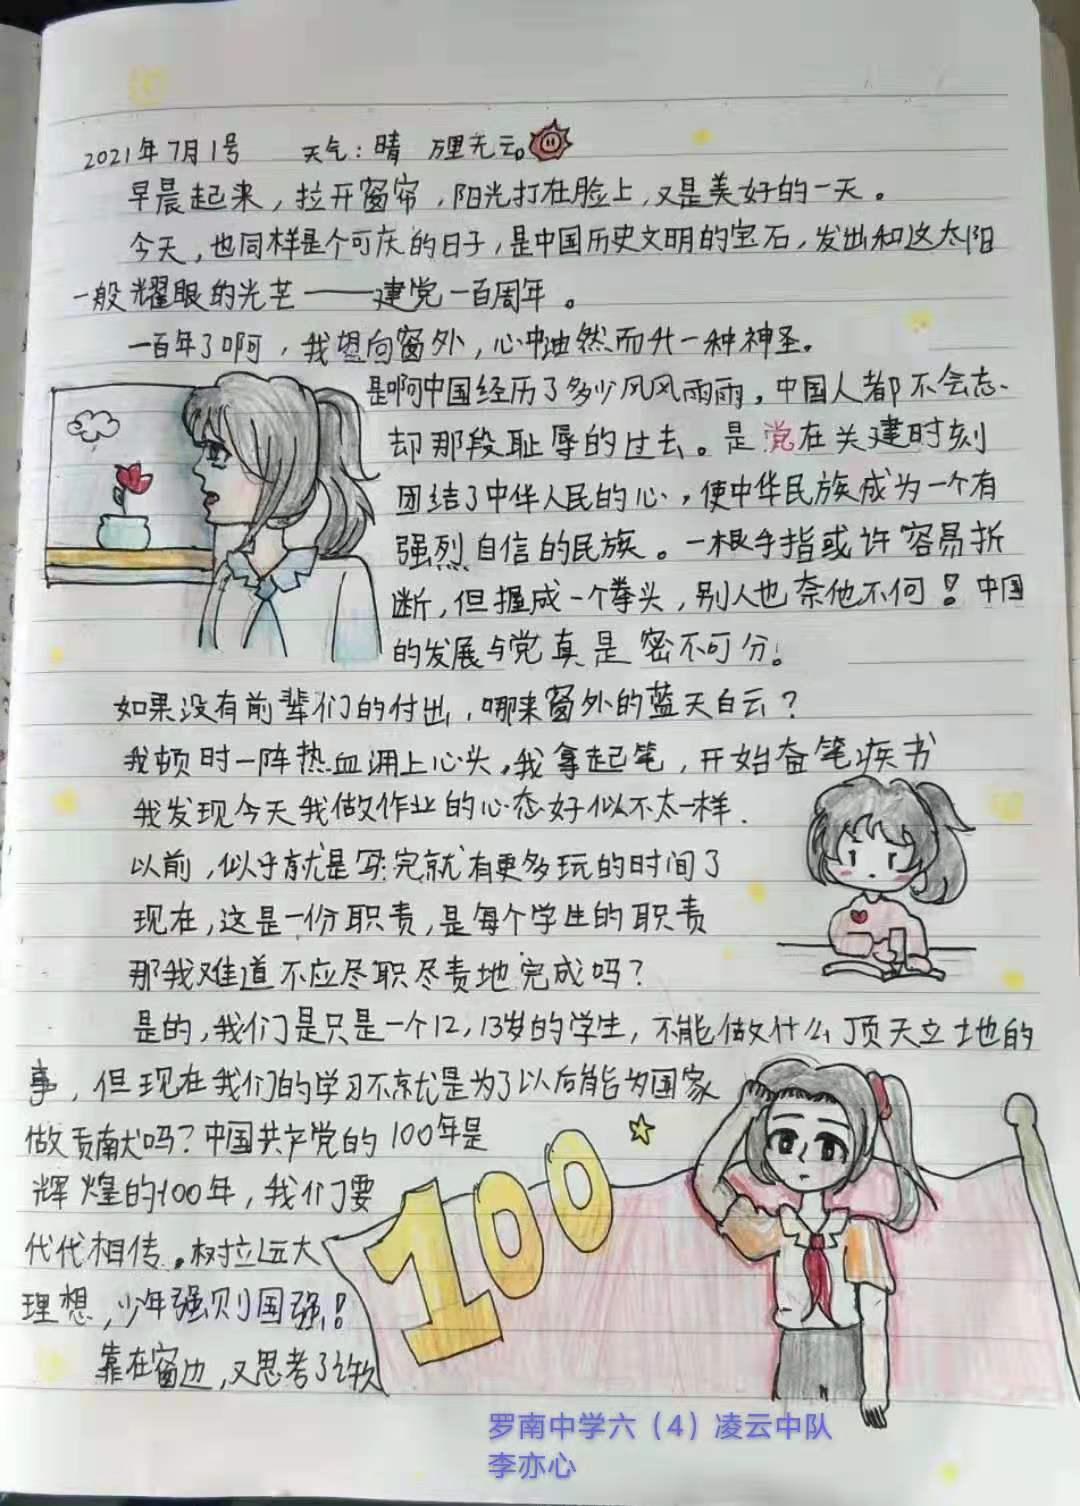 2021年7月1号 天气：晴 万里无云。
早晨起来，拉开窗帘，阳光打在脸上，又是美好的一天。
今天，也同样是个可庆的日子，是中国历史文明的宝石，发出和这太阳
一般耀眼的光芒——建党一百周年。
一百年了啊，我望向窗外，心中油然而升一种神圣。
是啊中国经历了多少风风雨雨，中国人都不会忘
却那段耻辱的过去。是党在关建时刻
团结了中华人民的心，使中华民族成为一个有
强烈自信的民族。一根手指或许容易折
断，但握成一个拳头，别人也奈他不何！中国
的发展与党真是密不可分。
如果没有前辈们的付出，哪来窗外的蓝天白云？
我顿时一阵热血涌上心头，我拿起笔，开始奋笔疾书
我发现今天我做作业的心态好似不太一样．
以前，似乎就是写完就有更多玩的时间了
现在，这是一份职责，是每个学生的职责
那我难道不应尽职尽责地完成吗？
是的，我们是只是一个12，13岁的学生，不能做什么顶天立地的
事，但现在我们的学习不就是为了以后能为国家
做贡献吗？中国共产党的100年是
辉煌的100年，我们要
代代相传。树拉远大
理想，少年强则国强！
靠在窗边，又思考了许久
100
罗南中学六（4）凌云中队
李亦心